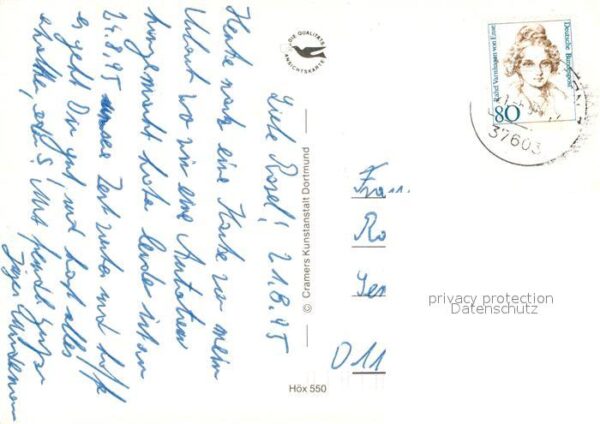 Liebe Rosel! 21.8.95
Heute noch eine Karte von mein
Urlaub wo wir eine Autotour
hingemacht habe leider ist am
24.8.95 unsere Zeit und hoffe
es geht Dir gut, und hast alles
erhalten, Mit freundl. Grüße
Jürgen
DIE QUALITÄTS
ANSICHTSKARTE
© Cramers Kunstanstalt Dortmund
Höx 550
Rahel Varnhagen von Ense
Deutsche Bundespost
80
37603
Frau
Ro
Jen
D 11
privacy protection
Datenschutz